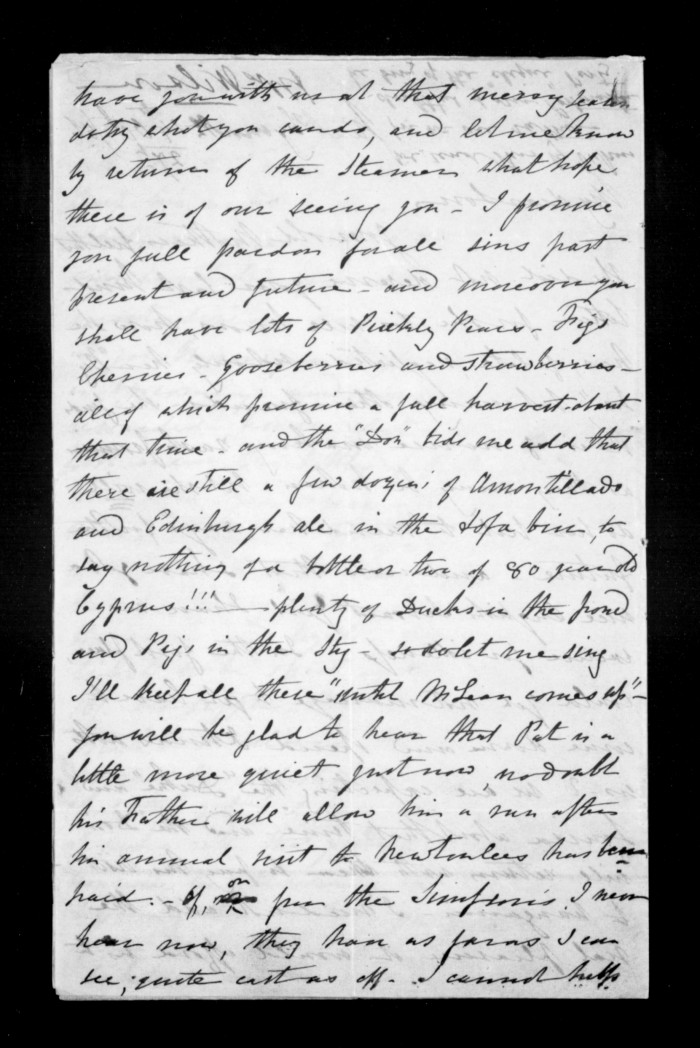 have you with us at that merry season
do try what you can do, and let me know
by return of the Steamer what hope
there is of our seeing you - I promise
you full pardon for all sins past
present and future - and moreover you
shall have lots of Prickly Pears - Figs
Cherries - Gooseberries and strawberries -
all of which promise a full harvest about
that time - and the "Don" bids me add that
there are still a few dozens of Amontillado
and Edinburgh ale in the sofa bin, to
say nothing of a bottle or two of 80 year old
Cyprus!!! - plenty of Ducks in the pond
and Pigs in the Sty - so do let me sing
I'll keep all these "until McLean comes up" -
you will be glad to hear that Pat is a
little more quiet just now, no doubt
his Father will allow him a run after
his annual visit to has been
paid. - Of, or from the Simpsons I never
hear now, they have as far as I can
see, quite cast us off - I cannot help